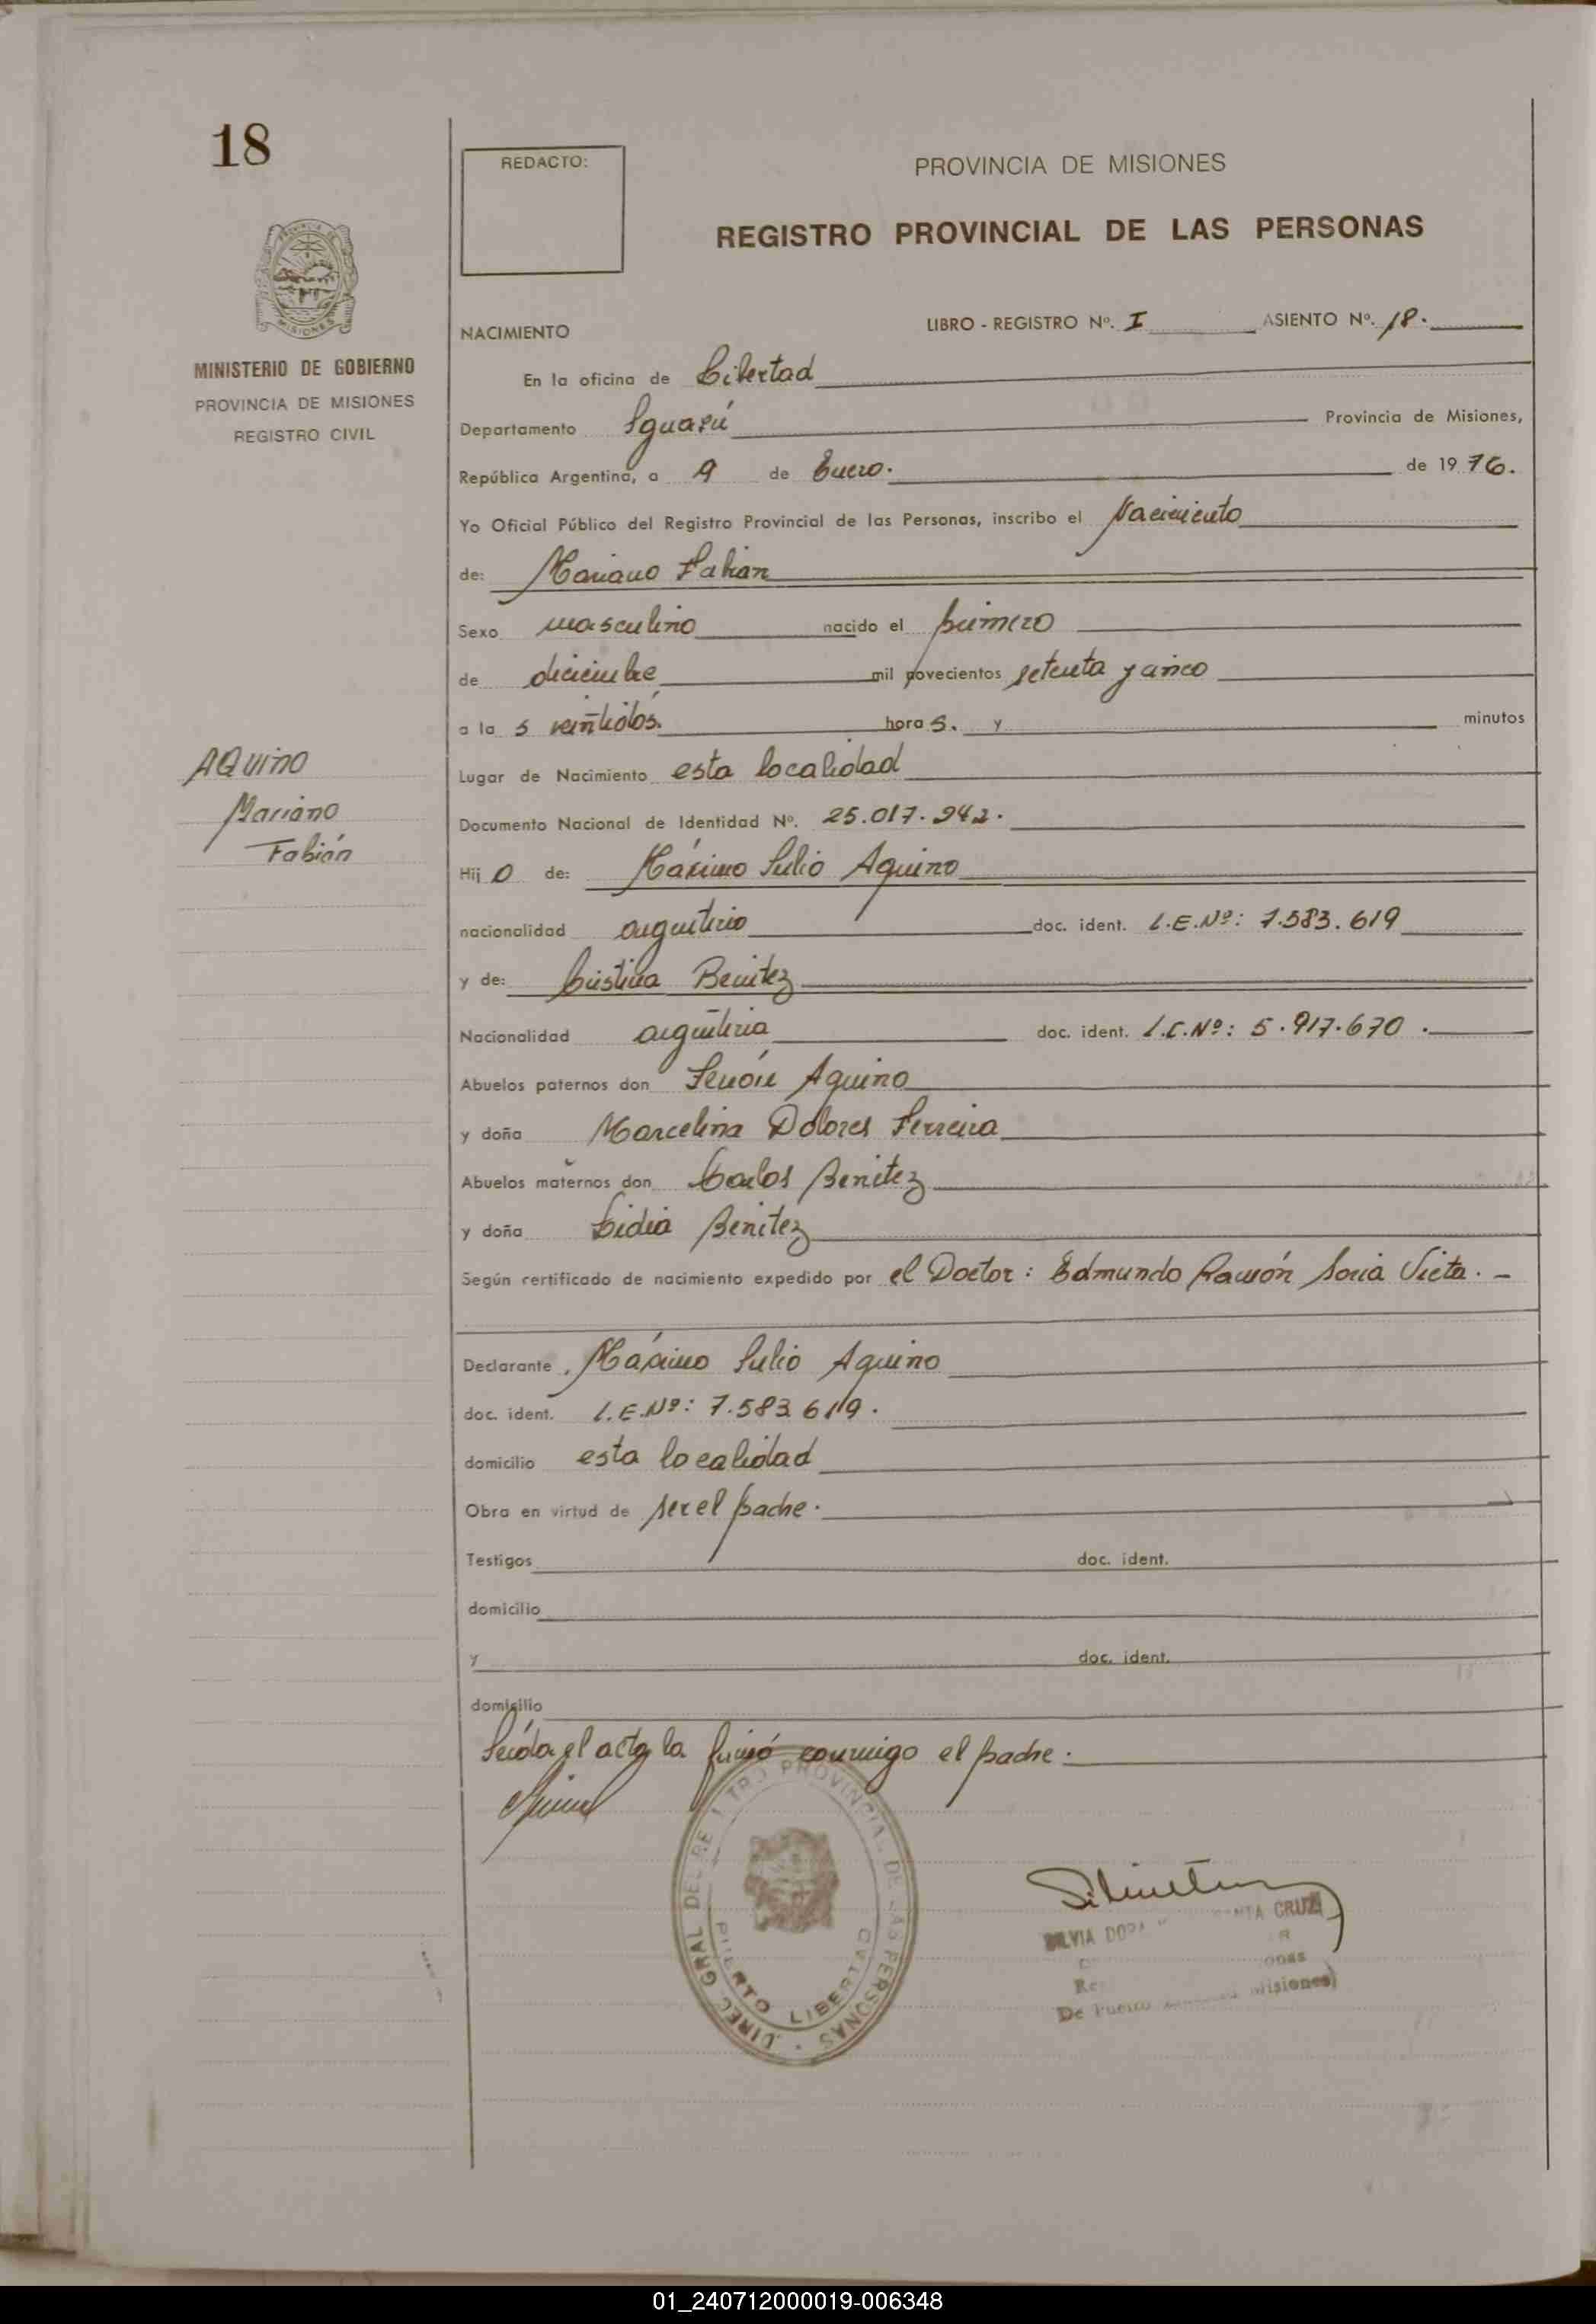 18
REDACTO:
PROVINCIA DE MISIONES
REGISTRO PROVINCIAL DE LAS PERSONAS
MISIONES
MINISTERIO DE GOBIERNO
PROVINCIA DE MISIONES
REGISTRO CIVIL
NACIMIENTO
LIBRO - REGISTRO Nº. I ASIENTO Nº. 18.
En la oficina de Libertad
Departamento Iguazú Provincia de Misiones,
República Argentina, a 9 de Enero. de 1976.
Yo Oficial Público del Registro Provincial de las Personas, inscribo el Nacimiento
de: Mariano Fabian
Sexo masculino nacido el primero
de diciembre mil novecientos setenta y cinco
a la s veintidós. hora s. y minutos
Lugar de Nacimiento esta localidad
Documento Nacional de Identidad Nº. 25.017.942.
AQuino
Mariano
Fabián
Hij o de: Máximo Julio Aquino
nacionalidad argentino doc. ident. L.E.Nº: 7.583.619
y de: Cristina Benitez
Nacionalidad argentina doc. ident. L.C.Nº: 5.917.670.
Abuelos paternos don Zenón Aquino
y doña Marcelina Dolores Ferreira
Abuelos maternos don Carlos Benitez
y doña Lidia Benitez
Según certificado de nacimiento expedido por el Doctor: Edmundo Ramón Soria Vieta. -
Declarante Máximo Julio Aquino
doc. ident. L.E.Nº: 7.583.619.
domicilio esta localidad
Obra en virtud de ser el padre.
Testigos doc. ident.
domicilio
y doc. ident.
domicilio
Leída el acta la firmó conmigo el padre.
DIREC. GRAL DEL RE TRO PROVINCIAL DE LAS PERSONAS
PUERTO LIBERTAD
SILVIA DORA NTA CRUZ
De Puerto Misiones)
01_240712000019-006348